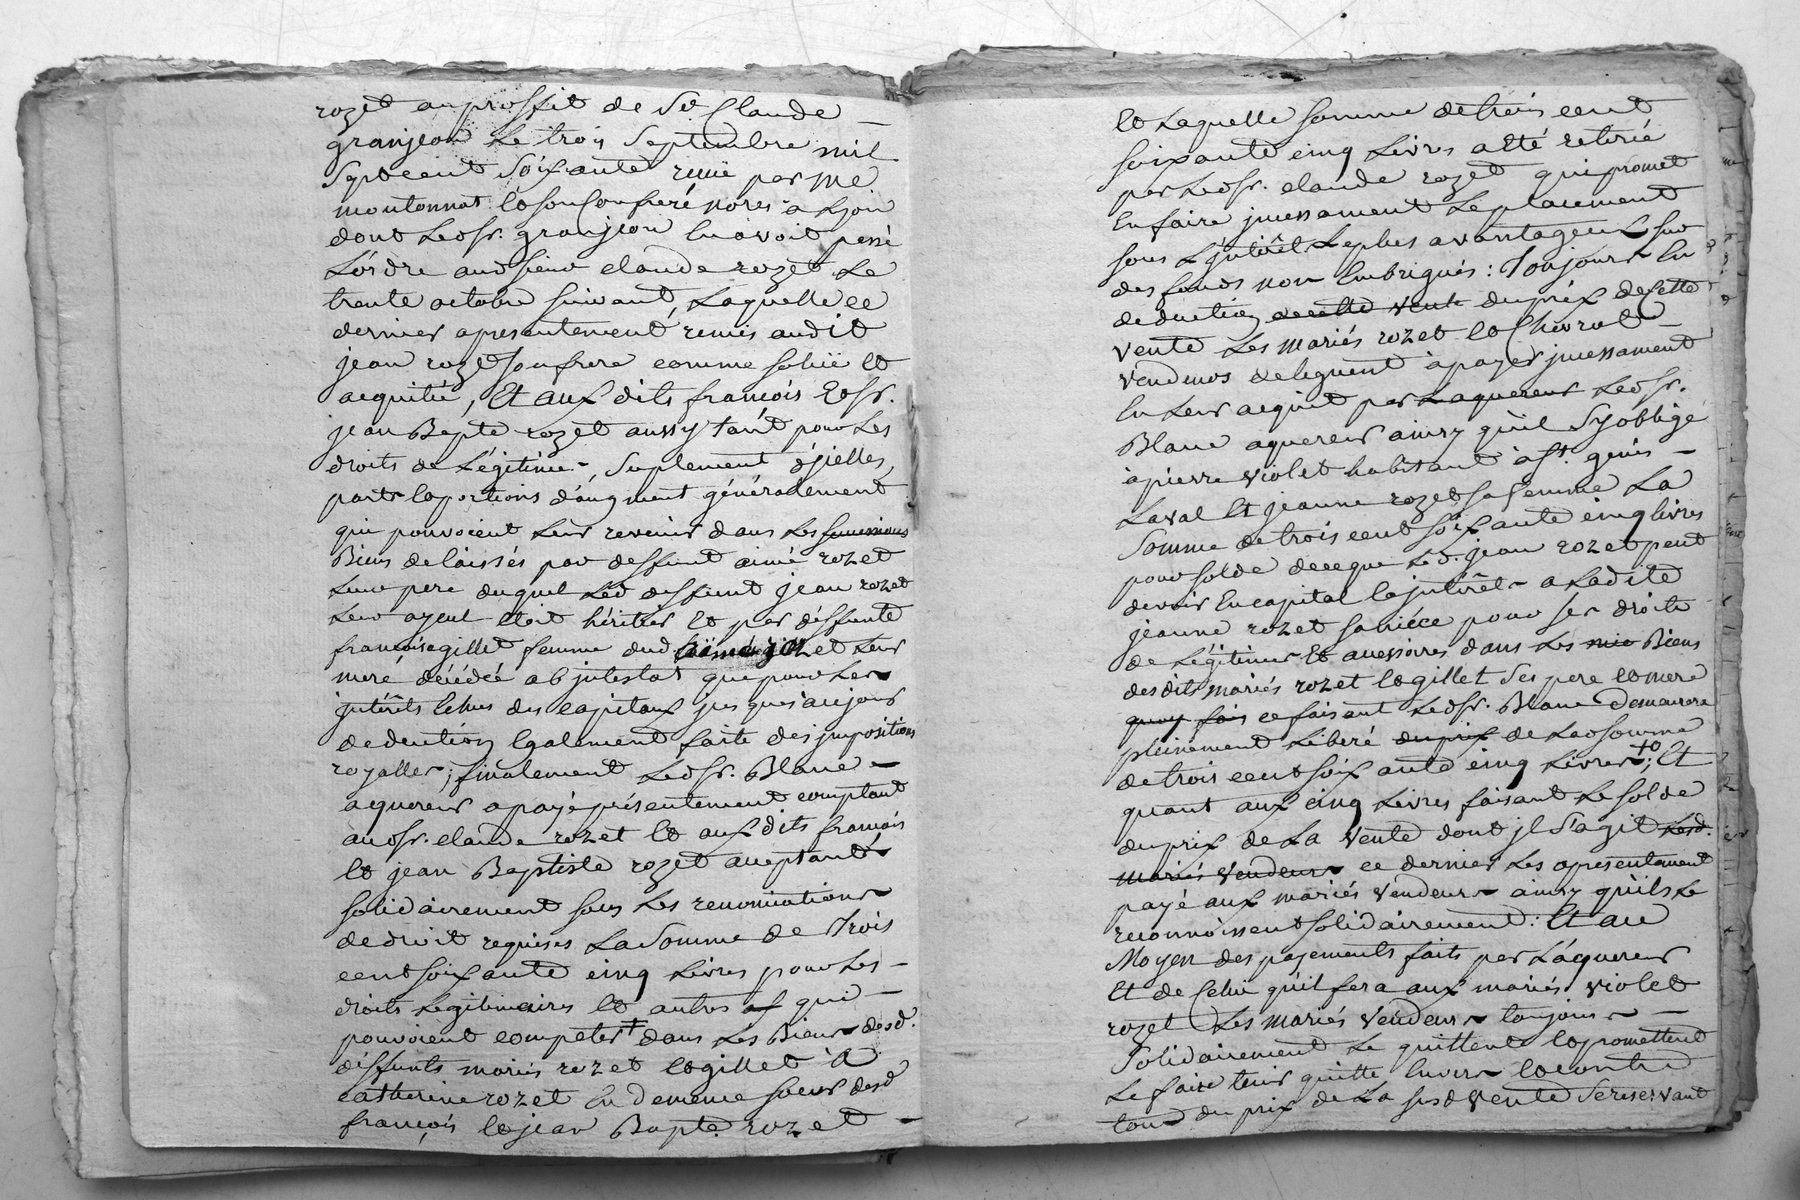 rozet au proffit de Sr. Claude
granjeon le trois Septembre mil
Sept cent Soixante reçue par Me
montonnat et son Confreré nores a Lyon
dont ledsr. granjeon lui avoit passé
L'ordre aud sieur claude rozet Le
trente octobre suivant, Laquelle ce
dernier a presentement remis audit
jean rozet son frere comme solvie et
acquitée, Et aux dits francois Edsr.
jean Bapte rozet aussy tant pour Les
droits de Légitime, Suplement d'jcelles,
parts et portions d'augment généralement
qui pouvoient Leur revenir dans Les successions
Biens delaissés par deffunt aimé rozet
Leur pere duquel Led deffunt jean rozet
Leur ayeul Etoit héritier Et par déffunte
françoise gillet femme dud aimé rozet Leur
meré décédée ab jntestat que pour Les
jnterêts Echus des capitaux jusques aujour
deduction Egalement faite des jmpositions
royalles; finalement Ledsr. Blanc
aquereur a payé présentement comptant
audsr. claude rozet Et aux dits francois
Et jean Baptiste rozet acceptants
solidairement sous Les renonciations
de droit requises La Somme de Trois
cent soixante cinq Livres pour Les
droits Legitimaires Et autres qui
pouvoient competer + dans Les Biens desd.
déffunts mariés rozet Et gillet A
catherine rozet En demence soeur desd
françois Et jean Bapte. rozet
Et Laquelle somme de trois cent
soixante cinq Livres a Eté retirée
par Ledsr. claude rozet qui promet
En faire jncessament Le placement
sous L'jnterêt Le plus avantageux sur
des fonds non Embrigués: Toujours En
deduction de cette vente du prix de Cette
vente Les mariés rozet Et Chevrot
vendeurs deleguent à payer jncessament
En Leur acquit par L'aquereur Ledsr.
Blanc aquereur ainsy qu'il S'y obligé
à pierre violet habitant à St. genis
Laval Et jeanne rozet sa femme La
Somme de trois cent soixante cinq livres
pour solde de ce que Led. jean rozet peut
devoir En capital Et jnterêts a Ladite
jeanne rozet sa niéce pour ses droits
de Légitimes Et accessoires dans Les Biens
desdits mariés rozet Et gillet Ses pere Et mere
quoy fais ce faisant Ledsr. Blanc Demeurera
pleinement Liberé du prix de Lad somme
de trois cent soixante cinq Livres +o; Et
quant aux cinq Livres faisant Le solde
du prix de La vente dont jl S'agit Lesd.
mariés vendeurs ce dernier Les a presentement
payé aux mariés véndeurs ainsy qu'ils Le
reconnoissent solidairement: Et au
Moyen des payements faits par L'aquereur
Et de Celui qu'il fera aux mariés violet
rozet Les mariés vendeurs toujours
solidairement Le quittent Et promettent
Le faire tenir quitte Envers Et contre
tous du prix de La susd vente Se reservant